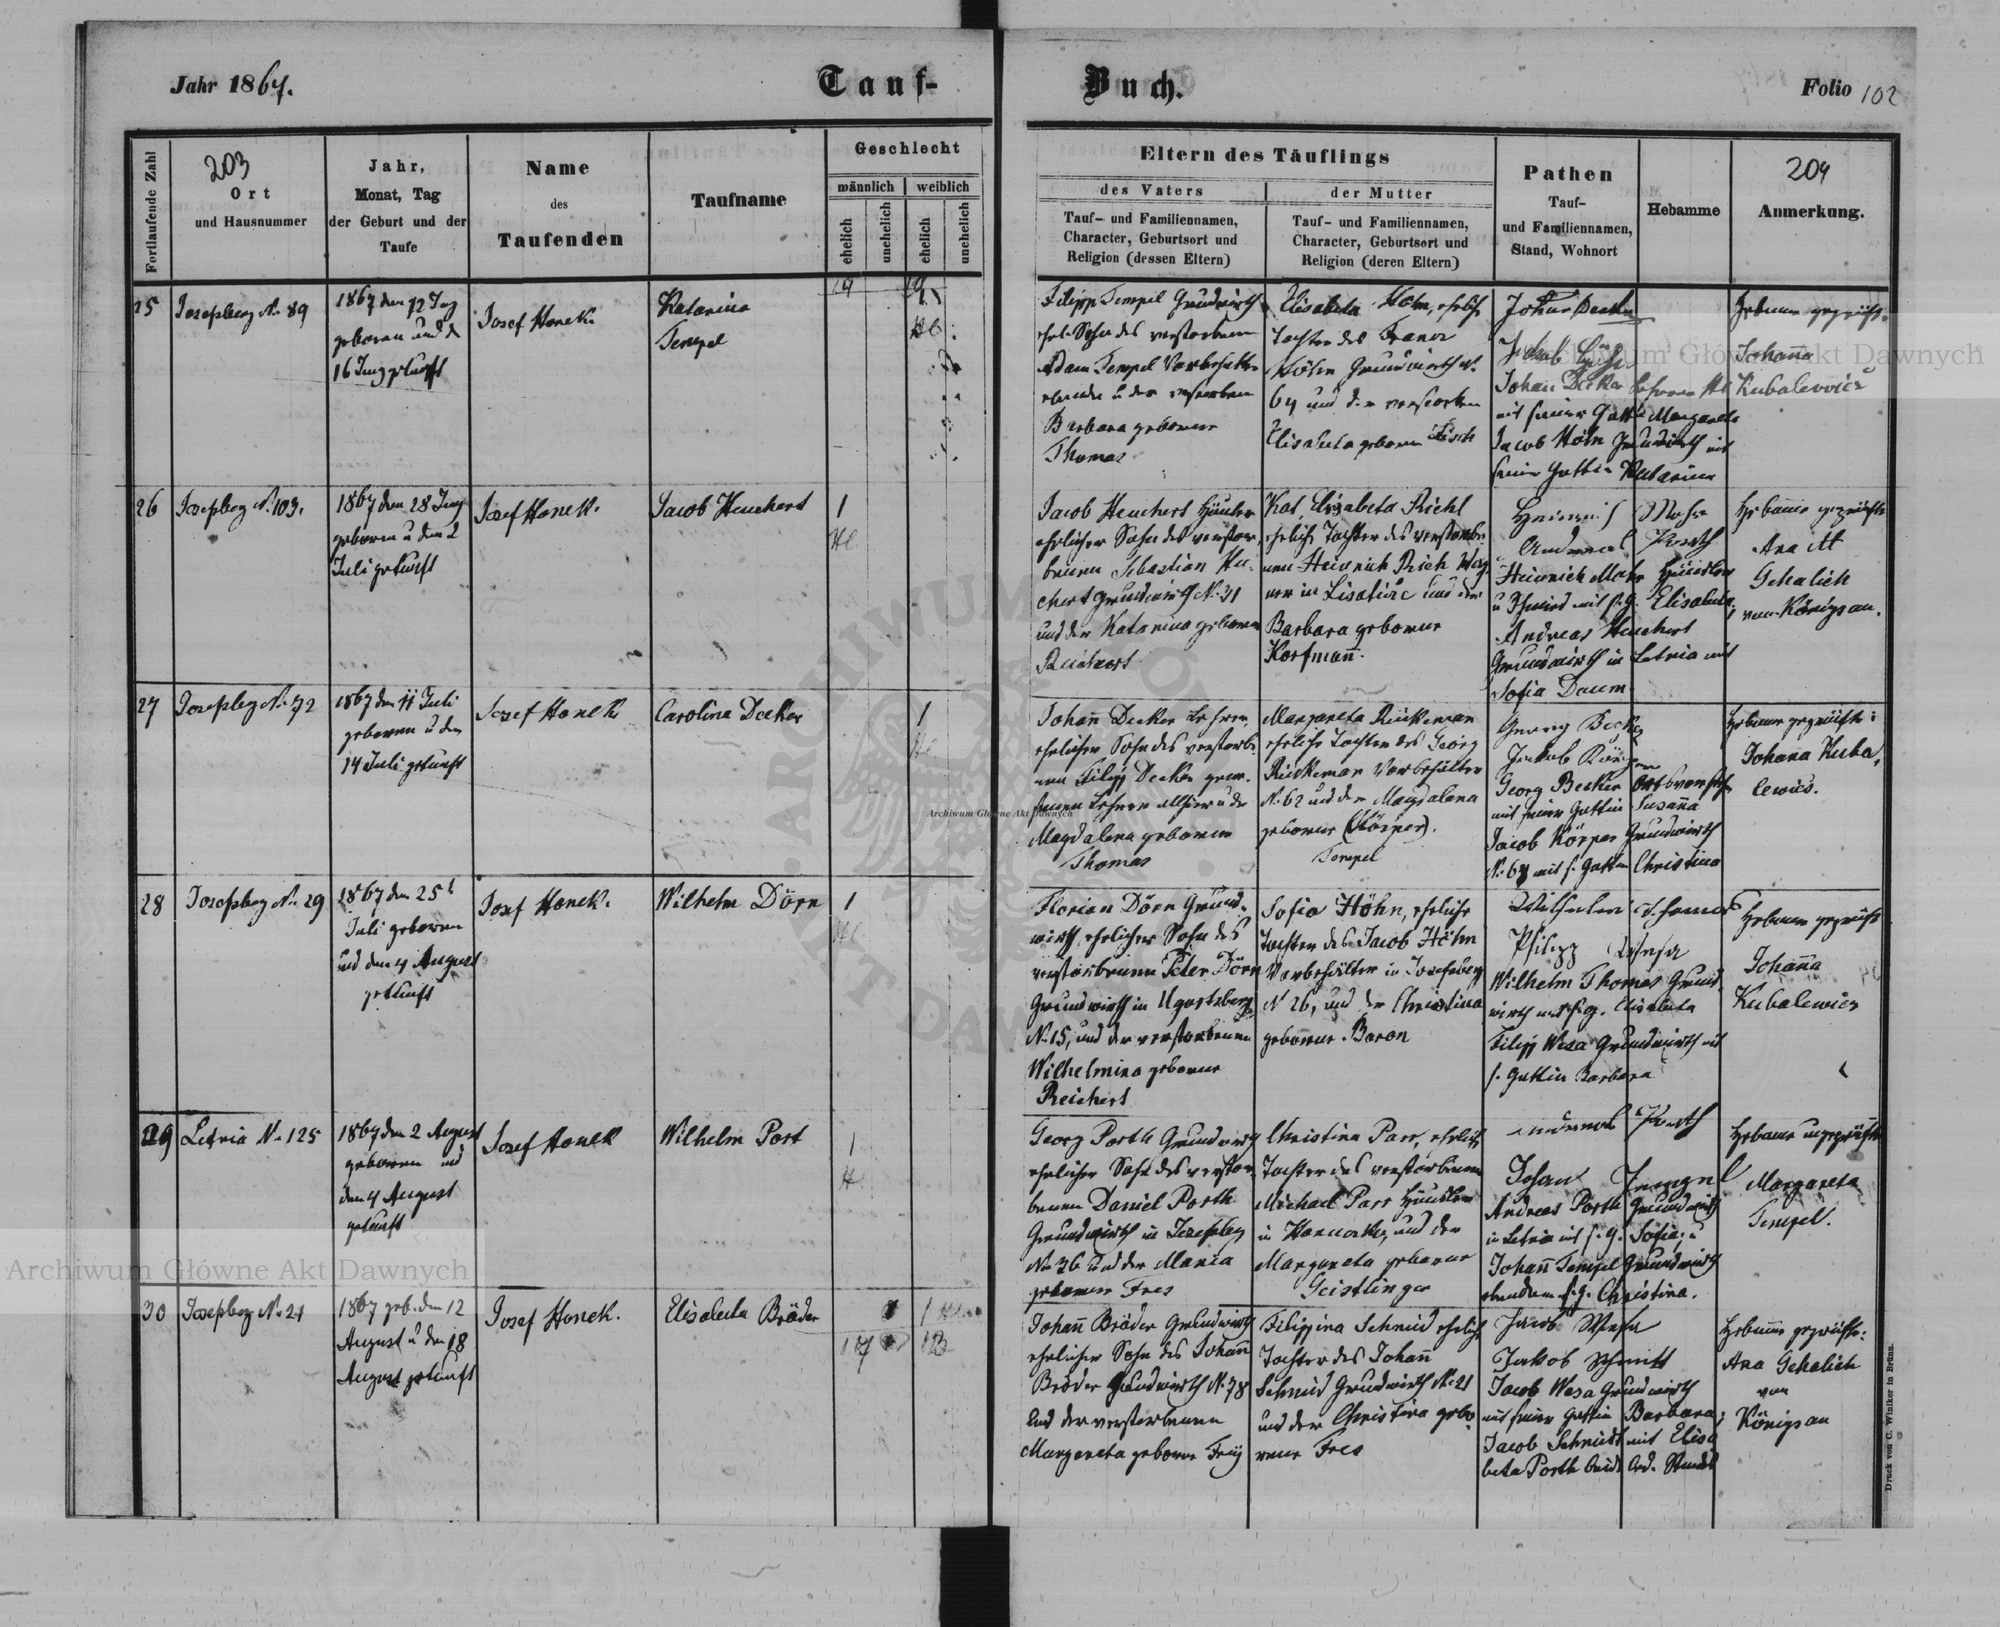 Jahr 1867.
Tauf-
Buch.
Folio 102
Fortlaufende Zahl
203
Ort
und Hausnummer
Jahr,
Monat, Tag
der Geburt und der
Taufe
Name
des
Taufenden
Taufname
Geschlecht
männlich
weiblich
ehelich
unehelich
ehelich
unehelich
Eltern des Täuflings
des Vaters
der Mutter
Tauf- und Familiennamen,
Character, Geburtsort und
Religion (dessen Eltern)
Tauf- und Familiennamen,
Character, Geburtsort und
Religion (deren Eltern)
Pathen
Tauf-
und Familiennamen,
Stand, Wohnort
Hebamme
204
Anmerkung.
25
Josefsberg No 89
1867 den 12 Juny
geboren und d
16 Juny getauft
Josef Honek.
Katarina
Tempel
Filipp Tempel Grundwirth
ehel. Sohn des verstorbenen
Adam Tempel Vorbehälter
Barbara geborene
Thomas
Elisabeta Höhn, eheliche
Tochter des Franz
Höhn Grundwirth N.
64 und der verstorbenen
Elisabeta geborene
Johan Decker
Johann Decker Lehrer
mit seiner Gattin Margareta
Jacob Höhn Grundwirth mit
seiner Gattin Katarina
Hebamme geprüft.
Johanna
Kubalewicz
26
Josefsberg N. 103.
1867 den 28 Juny
geboren u den 2
Juli getauft
Josef Honek.
Jacob Heuchert
1
Jacob Heuchert Häusler
ehelicher Sohn des verstor-
benen Sebastian Heu-
chert Grundwirth N. 31
und der Katarina geborene
Reichert
Kat. Elisabeta Riehl
eheliche Tochter des verstorbe-
nen Heinrich Rieh
in Lisatice und der
Barbara geborene
Korfmann.
Heinrich Mohr
Andreas
Heinrich Mohr Häusler
u Schmied mit s. g. Elisabeta
Andreas Heuchert
Grundwirth in Letnia mit
Sofia Daum
Hebamme geprüfte
Ana
Gehalich
von Königsau.
27
Josefsberg No 72
1867 den 11 Juli
geboren u den
14 Juli getauft
Josef Honek
Carolina Decker
1
Johann Decker Lehrer,
ehelicher Sohn des verstorbe-
nen Filipp Decker gewe-
senen Lehrer allhier u der
Magdalena geborene
Thomas
Margareta Rückeman
eheliche Tochter des Georg
Rückeman Vorbehälter
N. 62 und der Magdalena
geborene (Körper).
Tempel
Georg Becker
Jakob
Georg Becker Ortsvorsteher
mit seiner Gattin Susanna
Jacob Körper Grundwirth
mit s. Gattin Christina
Hebamme geprüfte:
Johana Kuba-
lewicz.
28
Josefsberg No 29
1867 den 25t
Juli geboren
und den 4 August
getauft
Josef Honek.
Wilhelm Dörn
1
Florian Dörn Grund-
wirth, ehelicher Sohn des
verstorbenen Peter Dörn
Grundwirth in Ugartsberg
N. 15, und der verstorbenen
Wilhelmina geborene
Reichert
Sofia Höhn, eheliche
Tochter des Jacob Höhn
Vorbehälter in Josefsberg
N 26, und der Christina
geborene Baron
Wilhelm Thomas
Philipp
Wilhelm Thomas Grund-
wirth mit s. g. Elisabeta
Filipp Wesa Grundwirth mit
s. Gattin Barbara
Hebamme geprüft
Johanna
Kubalewicz
29
Letnia No 125
1867 den 2 August
geboren und
den 4 August
getauft
Josef Honek
Wilhelm Port
1
Georg Porth Grundwirth
ehelicher Sohn des verstor-
benen Daniel Porth
Grundwirth in Josefsberg
No 36 und der Maria
geborene Fres
Christina Parr, eheliche
Tochter des verstorbenen
Michael Parr Häusler
in und der
Margareta geborene
Geistlinger
Andreas Porth
Johan Tempel
Andreas Porth Grundwirth
in Letnia mit s. g. Sofia, u
Johann Tempel Grundwirth
ebendort s. g. Christina.
Hebamme ungeprüfte
Margareta
Tempel.
30
Josefsberg No 21
1867 geb. den 12
August u den 18
August getauft
Josef Honek.
Elisabeta Bröder
1
Johann Bröder Grundwirth
ehelicher Sohn des Johann
Bröder Grundwirth N. 78
und der verstorbenen
Margareta geborene Frey
Filippina Schmid eheliche
Tochter des Johann
Schmid Grundwirth N. 21
und der Christina gebo-
rene Fres
Jacob Wesa
Jakob Schmitt
Jacob Wesa Grundwirth
mit seiner Gattin Barbara,
Jacob Schmidt mit Elisa-
beta Porth beide led. Standes
Hebamme geprüfte:
Ana Gehalich
von
Königsau
Druck von C. Winiker in Brünn.
Archiwum Główne Akt Dawnych
Archiwum Główne Akt Dawnych
Archiwum Główne Akt Dawnych